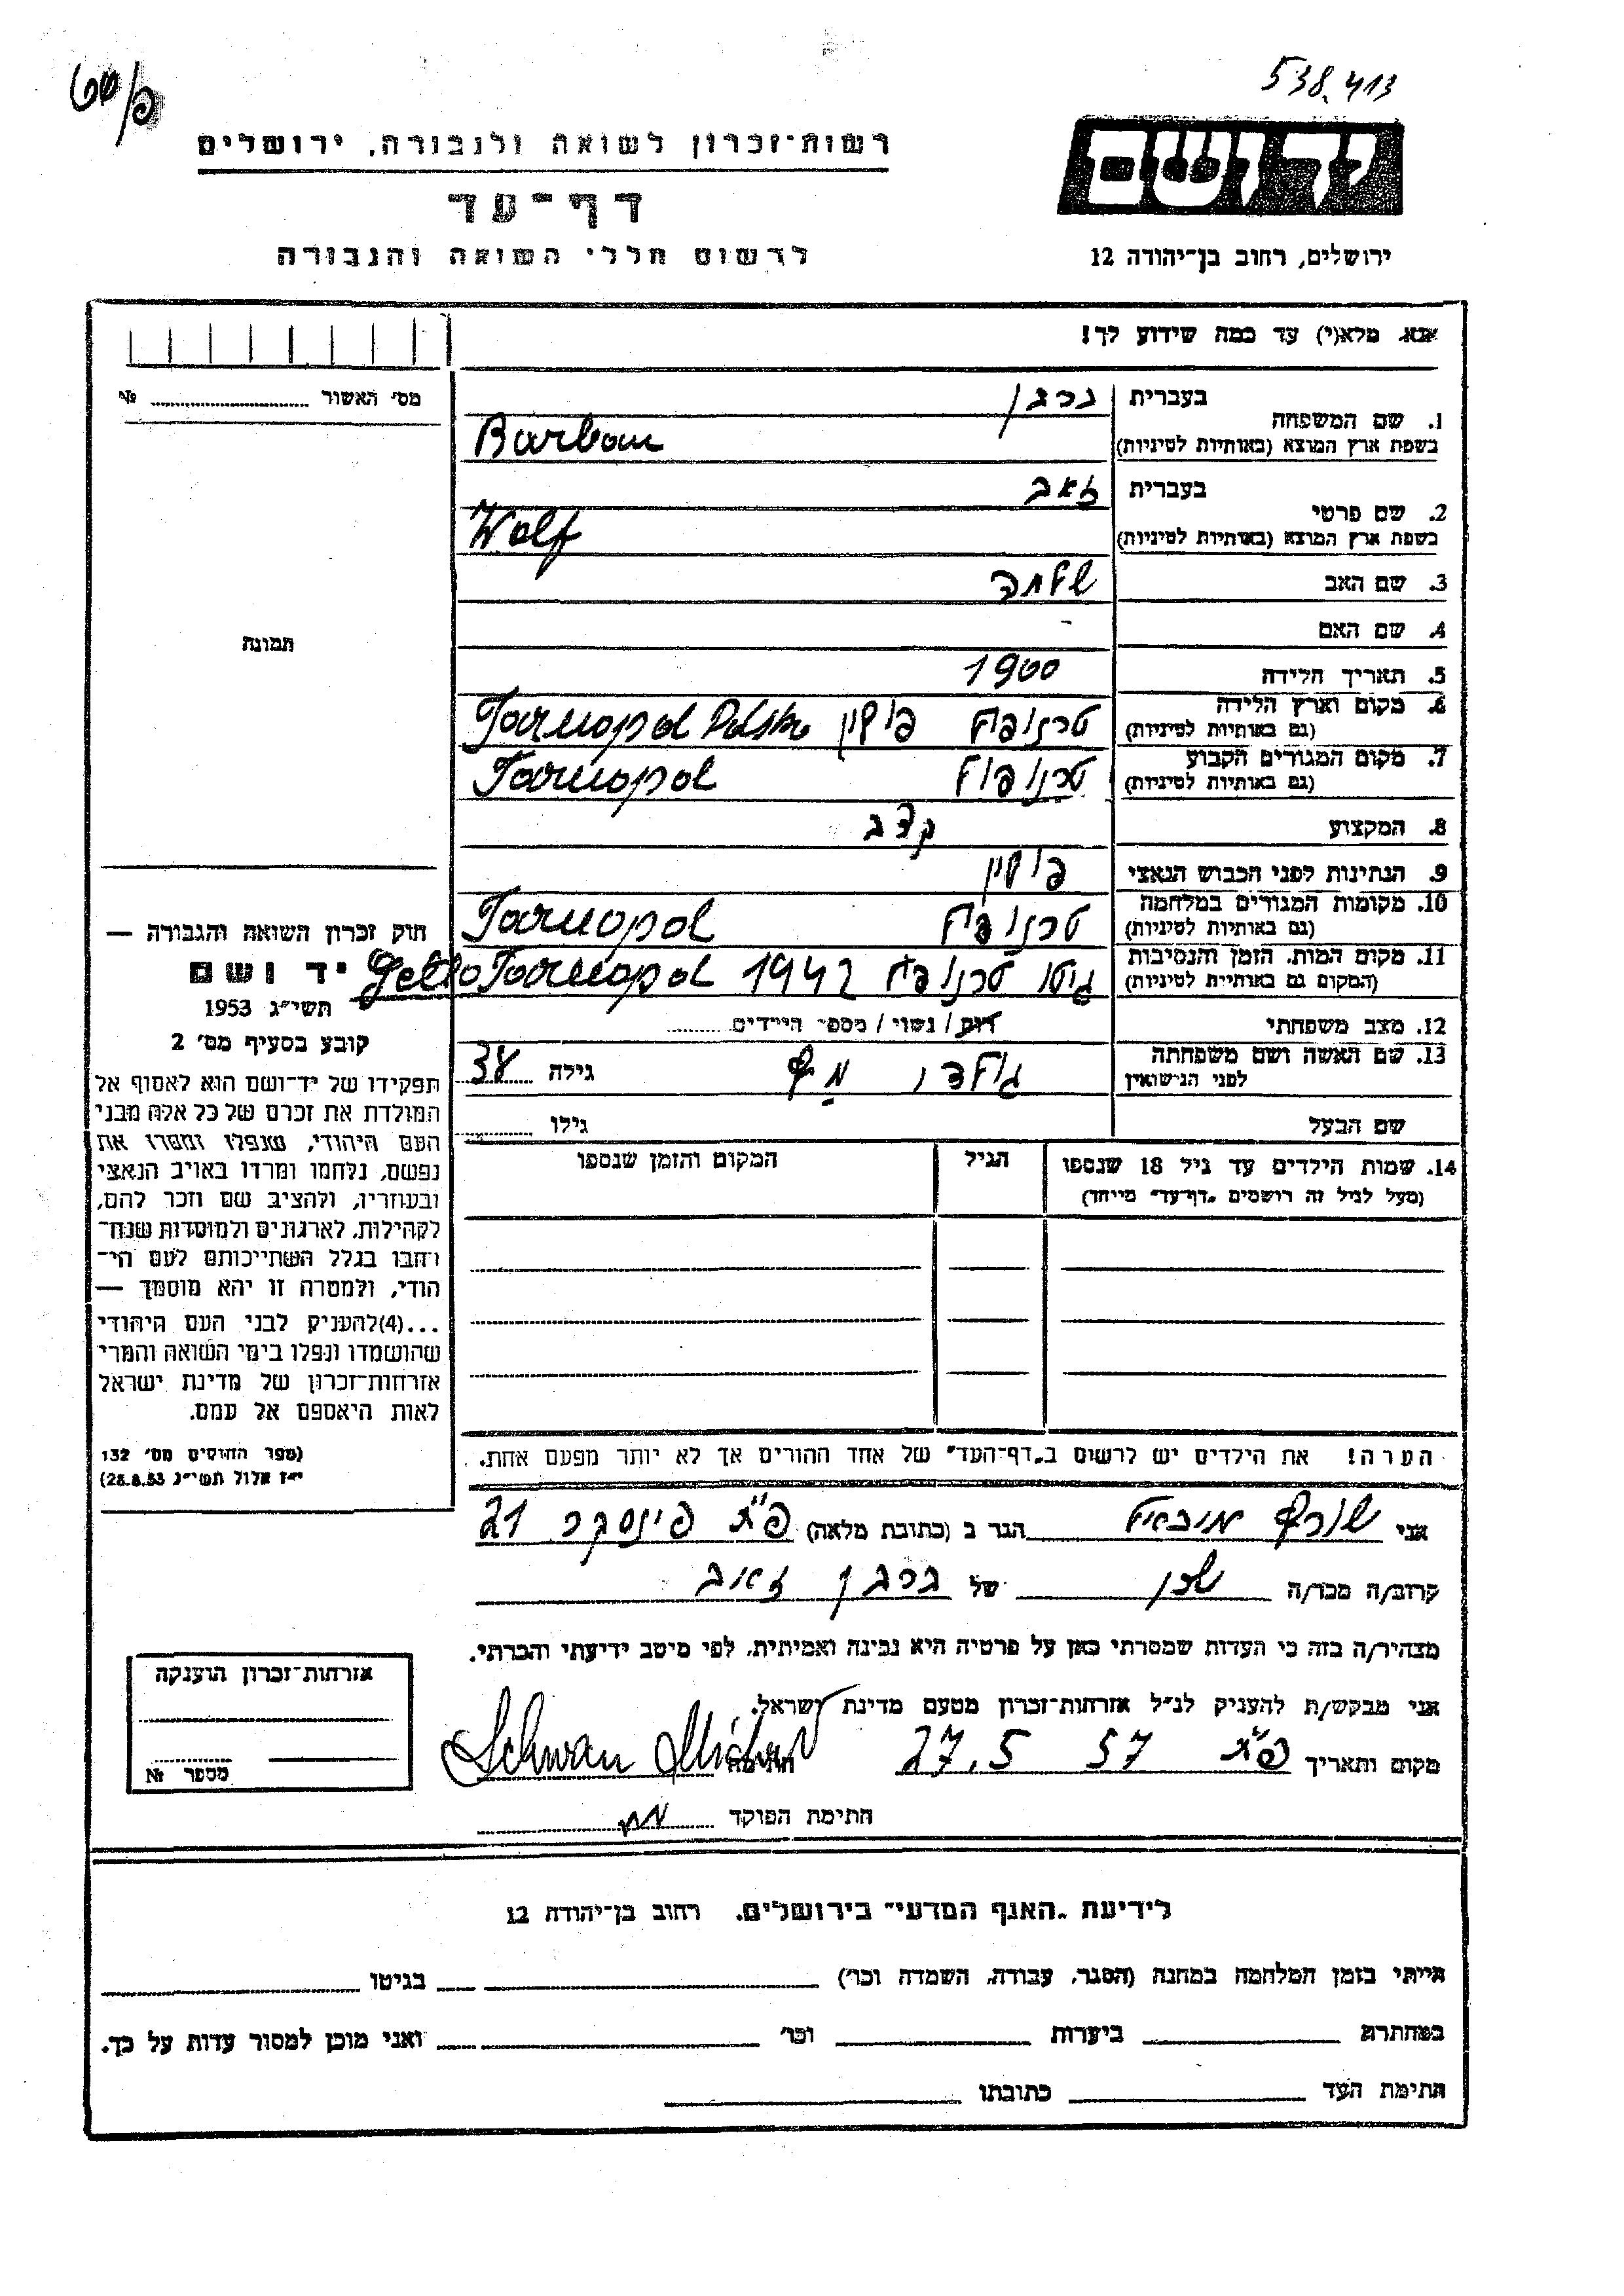 538.413
יד ושם
ירושלים, רחוב בן־יהודה 12
רשות־זכרון לשואה ולגבורה, ירושלים
דף־עד
לרשום חללי השואה והגבורה
אנא, מלא(י) עד כמה שידוע לך!
1. שם המשפחה
בעברית ברבן
בשפת ארץ המוצא (באותיות לטיניות) Barban
2. שם פרטי
בעברית זאב
בשפת ארץ המוצא (באותיות לטיניות) Wolf
3. שם האב שלמה
4. שם האם -
5. תאריך הלידה 1900
6. מקום וארץ הלידה
(גם באותיות לטיניות) טרנופול פולין Tarnopol Polska
7. מקום המגורים הקבוע
(גם באותיות לטיניות) טרנופול Tarnopol
8. המקצוע קצב
9. הנתינות לפני הכבוש הנאצי פולין
10. מקומות המגורים במלחמה
(גם באותיות לטיניות) טרנופול Tarnopol
11. מקום המות, הזמן והנסיבות
(המקום גם באותיות לטיניות) גיטו טרנופול 1942 Getto Tarnopol
12. מצב משפחתי רווק / נשוי / מספר הילדים
13. שם האשה ושם משפחתה
לפני הנישואין גולדה גילה 38
שם הבעל גילו
14. שמות הילדים עד גיל 18 שנספו
(מעל לגיל זה רושמים "דף־עד" מיוחד)
הגיל
המקום והזמן שנספו
הערה! את הילדים יש לרשום ב"דף־העד" של אחד ההורים אך לא יותר מפעם אחת.
מס' האשור №
תמונה
חוק זכרון השואה והגבורה —
יד ושם
תשי"ג 1953
קובע בסעיף מס' 2
תפקידו של יד־ושם הוא לאסוף אל
המולדת את זכרם של כל אלה מבני
העם היהודי, שנפלו ומסרו את
נפשם, נלחמו ומרדו באויב הנאצי
ובעוזריו, ולהציב שם וזכר להם,
לקהילות, לארגונים ולמוסדות שנח־
רבו בגלל השתייכותם לעם הי־
הודי, ולמטרה זו יהא מוסמך —
...(4)להעניק לבני העם היהודי
שהושמדו ונפלו בימי השואה והמרי
אזרחות־זכרון של מדינת ישראל
לאות היאספם אל עמם.
(ספר החוקים מס' 132
י"ז אלול תשי"ג 28.8.53)
אני מיכאל הגר ב (כתובת מלאה) פ"ת פינסקר 21
קרוב/ה מכר/ה שכן של ברבן זאב
מצהיר/ה בזה כי העדות שמסרתי כאן על פרטיה היא נכונה ואמיתית, לפי מיטב ידיעתי והכרתי.
אני מבקש/ת להעניק לנ"ל אזרחות־זכרון מטעם מדינת ישראל.
מקום ותאריך פ"ת 27.5 57 חתימה
חתימת הפוקד
אזרחות־זכרון הוענקה
מספר №
לידיעת "האגף המדעי" בירושלים, רחוב בן־יהודה 12
הייתי בזמן המלחמה במחנה (הסגר, עבודה, השמדה וכו') בגיטו
במחתרת ביערות וכו' ואני מוכן למסור עדות על כך.
חתימת העד כתובתו